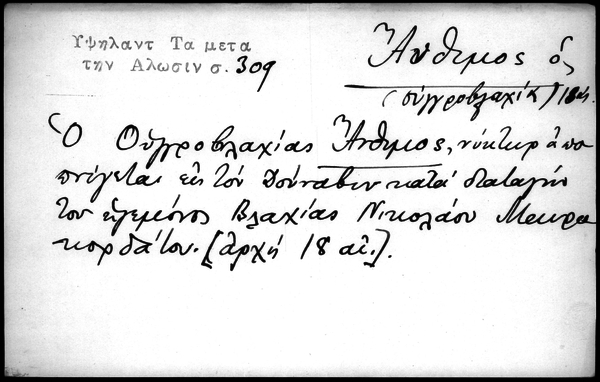 Υψηλαντ Τα μετα
την Αλωσιν σ. 309
Ἄνθιμος ὁ
(οὐγγροβλαχίας) 18 αἰ.
Ὁ Οὐγγροβλαχίας Ἄνθιμος, νύκτωρ ἀπο
πνίγεται εἰς τόν Δούναβιν κατά διαταγήν
του ἡγεμόνος Βλαχίας Νικολάου Μαυρο
κορδάτου. [ἀρχή 18 αἰ.].